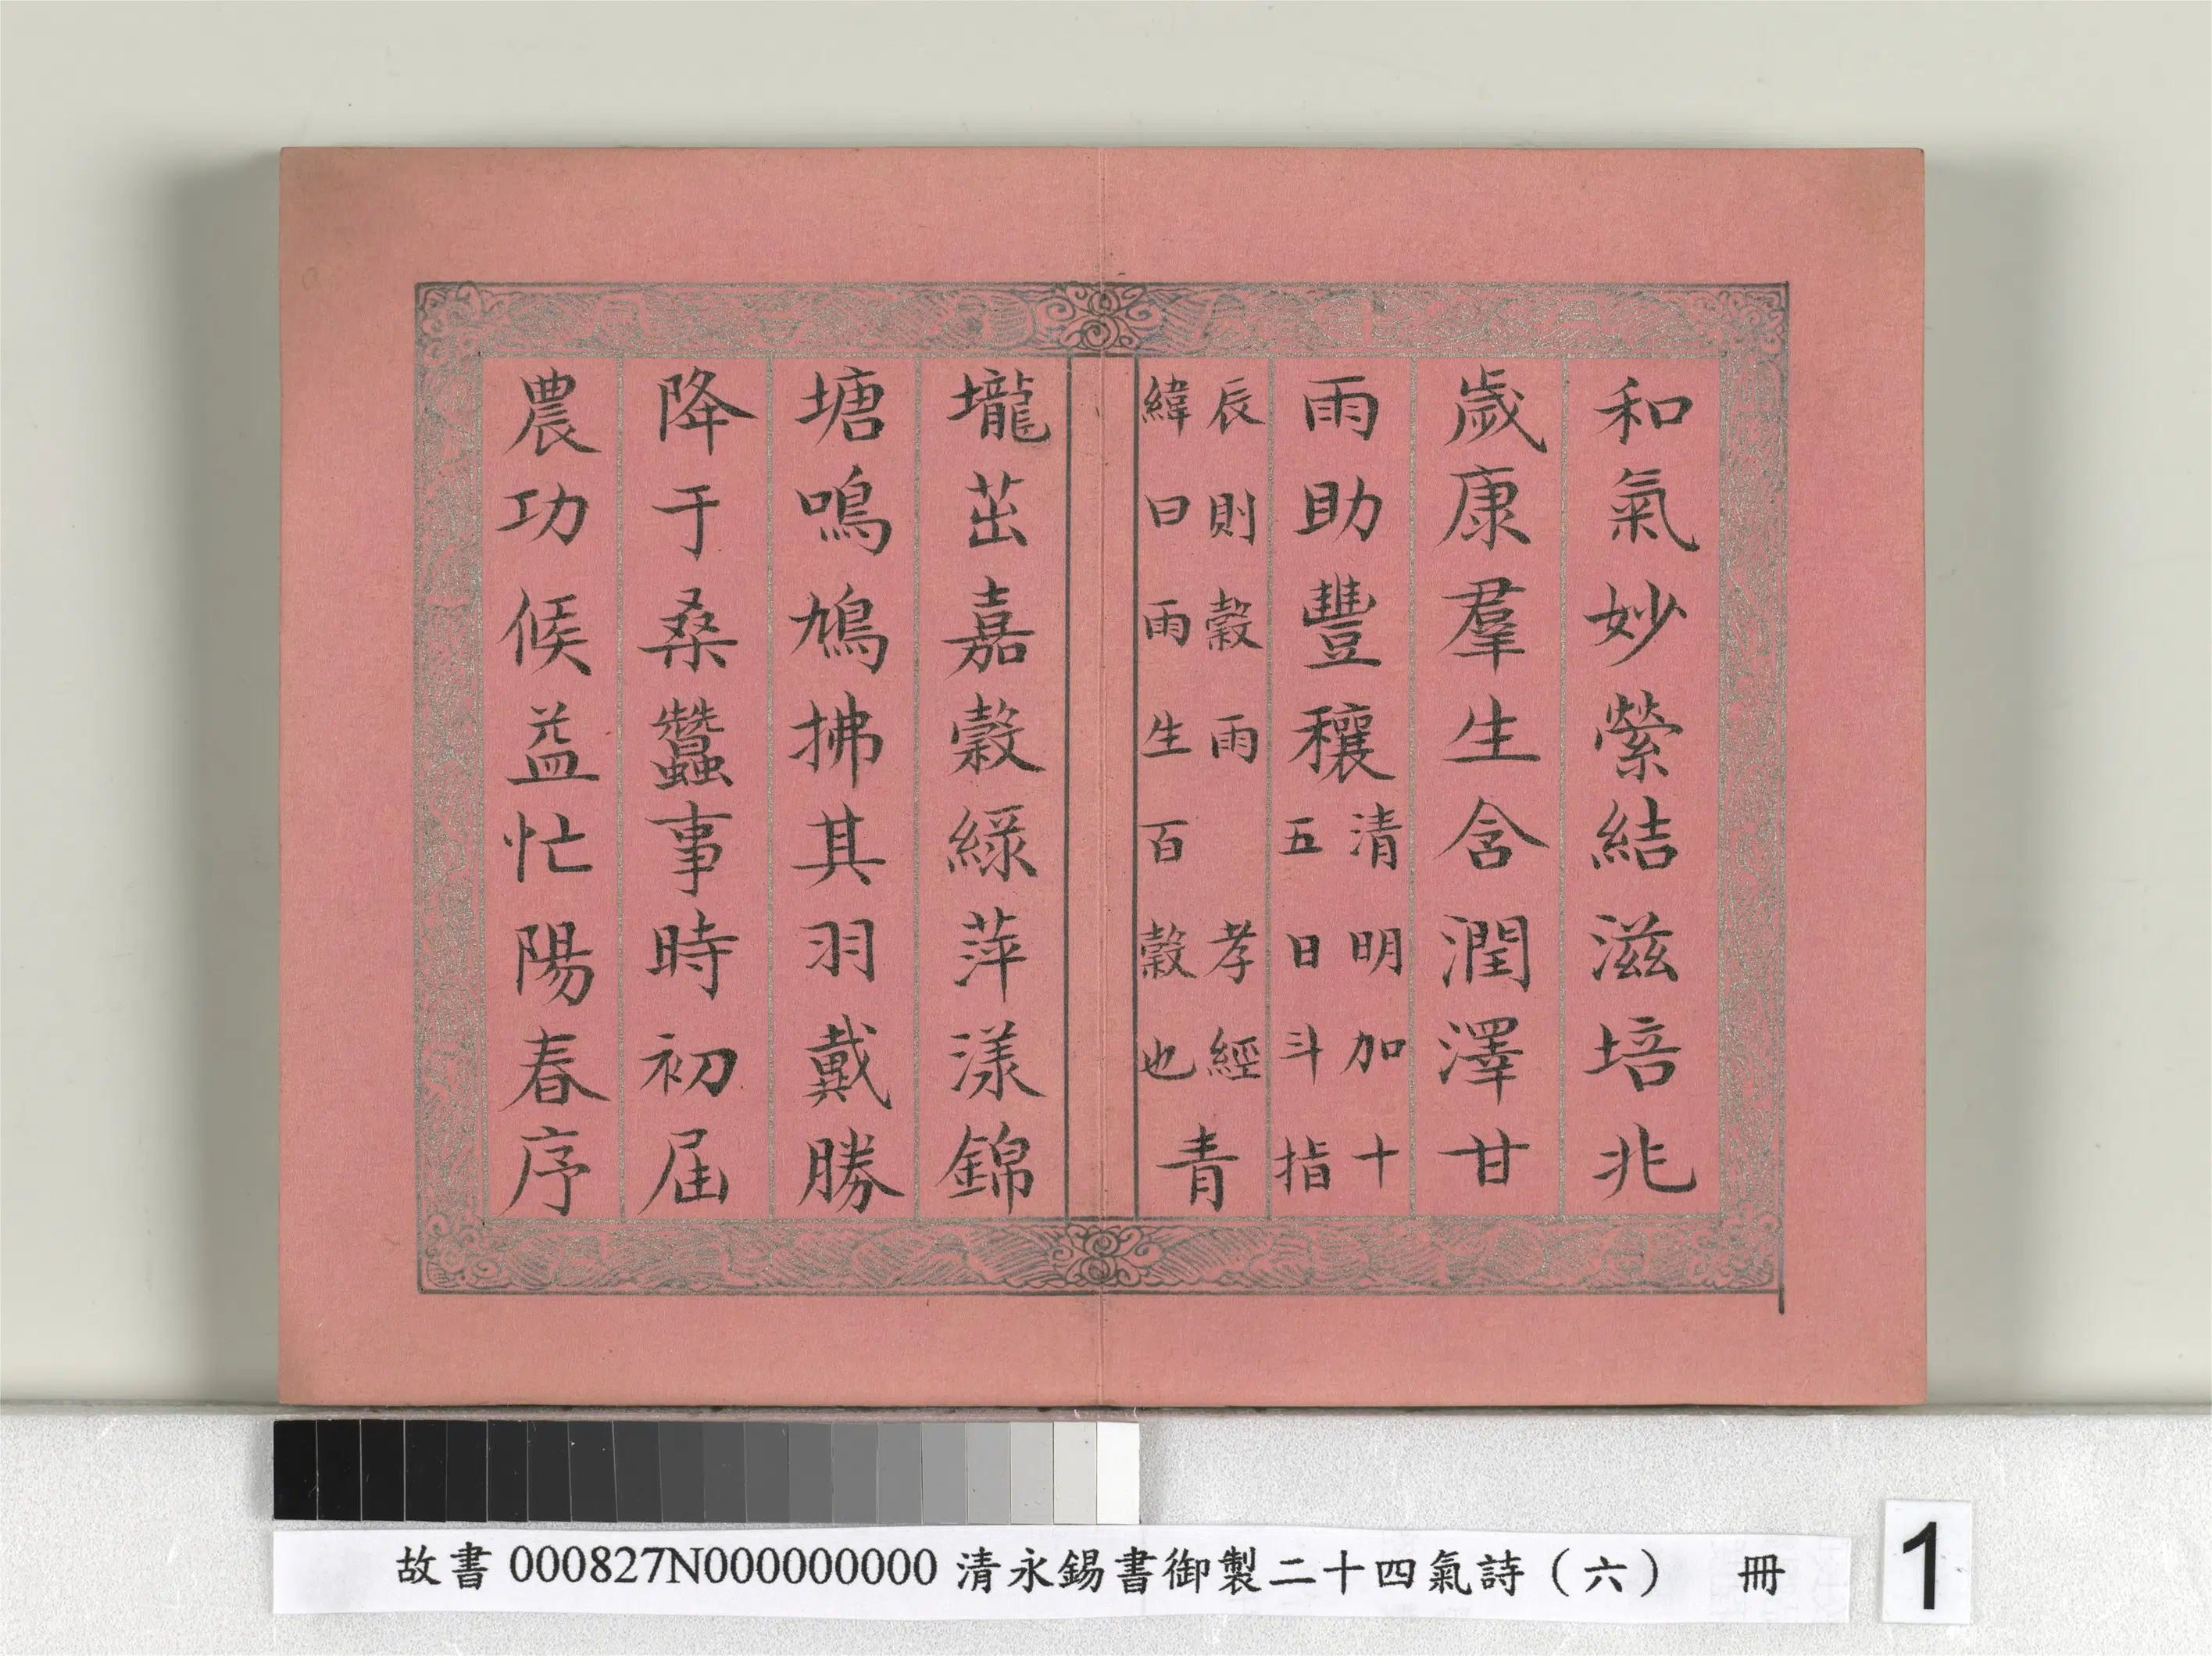 和氣妙縈結滋培兆
歲康羣生含潤澤甘
雨助豐穰清明加十五日斗指
辰則穀雨 孝經緯曰雨生百穀也青
壠茁嘉穀綠萍漾錦
塘鳴鳩拂其羽戴勝
降于桑蠶事時初屆
農功候益忙陽春序
故書 000827N000000000 清永錫書御製二十四氣詩（六） 冊
1